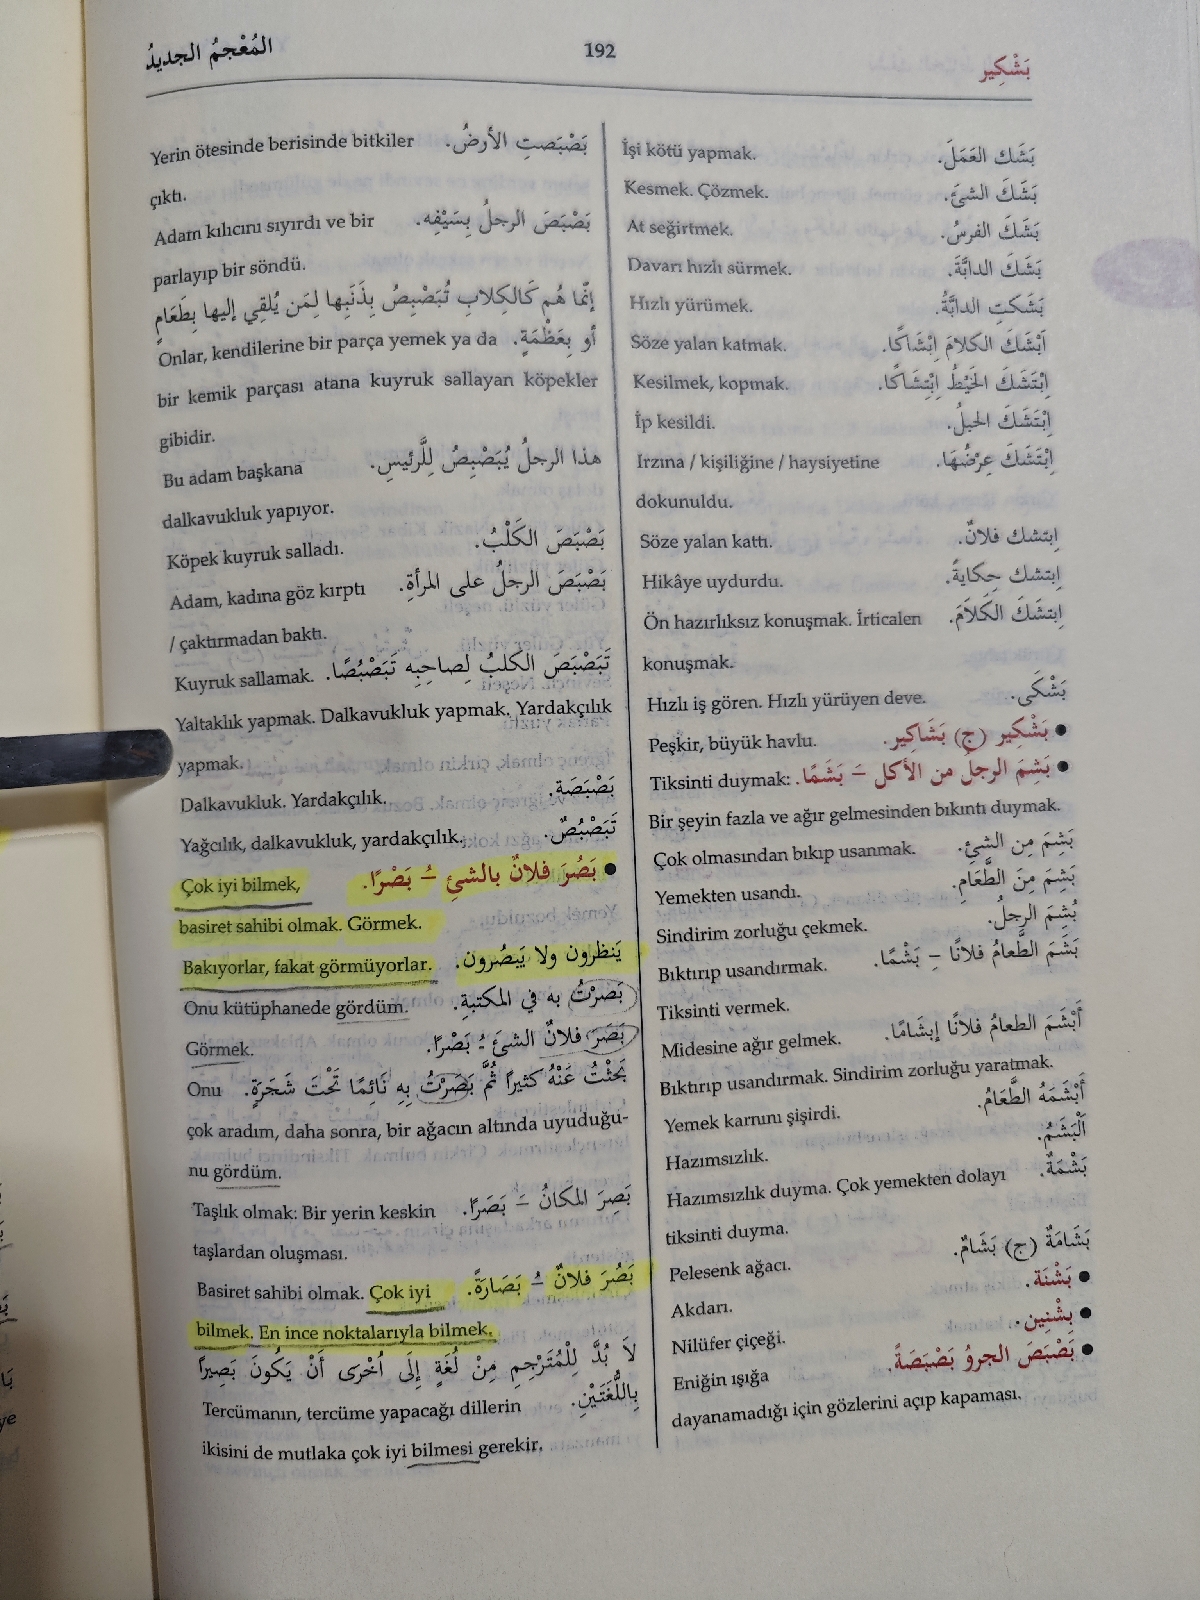 المُعْجمُ الجديدُ
192
بَشْكِير
بَشَك العَمَلَ. İşi kötü yapmak.
بَشَكَ الشئَ. Kesmek. Çözmek.
بَشَكَ الفرسُ. At seğirtmek.
بَشَكَ الدابَّةَ. Davarı hızlı sürmek.
بَشَكتِ الدابَّةُ. Hızlı yürümek.
اَبْشَكَ الكلامَ إبْشَاكًا. Söze yalan katmak.
اِبْتَشَكَ الخَيْطُ اِبْتِشَاكًا. Kesilmek, kopmak.
اِبْتَشَكَ الحبلُ. İp kesildi.
اِبْتَشَكَ عِرْضُهَا. Irzına / kişiliğine / haysiyetine
dokunuldu.
اِبتشك فلانٌ. Söze yalan kattı.
اِبتشك حِكايةً. Hikâye uydurdu.
اِبتشَكَ الكَلَامَ. Ön hazırlıksız konuşmak. İrticalen
konuşmak.
بَشْكَى. Hızlı iş gören. Hızlı yürüyen deve.
● بَشْكِير (ج) بَشَاكِير. Peşkir, büyük havlu.
● بَشِمَ الرجلُ من الأكل – بَشَمًا. Tiksinti duymak:
Bir şeyin fazla ve ağır gelmesinden bıkıntı duymak.
بَشِمَ مِن الشئِ. Çok olmasından bıkıp usanmak.
بَشِمَ مِنَ الطَّعَامِ. Yemekten usandı.
بُشِمَ الرجلُ. Sindirim zorluğu çekmek.
بَشَمَ الطَّعامُ فلانًا – بَشْمًا. Bıktırıp usandırmak.
Tiksinti vermek.
أَبْشَمَ الطعامُ فلانًا إبشَامًا. Midesine ağır gelmek.
Bıktırıp usandırmak. Sindirim zorluğu yaratmak.
أَبْشَمَهُ الطَّعَامُ. Yemek karnını şişirdi.
اَلْبَشَمُ. Hazımsızlık.
بَشْمَةٌ. Hazımsızlık duyma. Çok yemekten dolayı
tiksinti duyma.
بَشَامَةٌ (ج) بَشَامٌ. Pelesenk ağacı.
● بَشْنَة. Akdarı.
● بِشْنِين. Nilüfer çiçeği.
● بَصْبَصَ الجروُ بَصْبَصَةً. Eniğin ışığa
dayanamadığı için gözlerini açıp kapaması.
بَصْبَصتِ الأرضُ. Yerin ötesinde berisinde bitkiler
çıktı.
بَصْبَصَ الرجلُ بِسَيْفِه. Adam kılıcını sıyırdı ve bir
parlayıp bir söndü.
إنَّما هُم كَالكِلابِ تُبَصْبِصُ بِذَنَبِها لِمَن يُلقِي إليها بِطَعَامٍ
أو بِعَظْمَةٍ. Onlar, kendilerine bir parça yemek ya da
bir kemik parçası atana kuyruk sallayan köpekler
gibidir.
هذا الرجلُ يُبَصْبِصُ لِلرَّئيسِ. Bu adam başkana
dalkavukluk yapıyor.
بَصْبَصَ الكَلْبُ. Köpek kuyruk salladı.
بَصْبَصَ الرجلُ على المرأةِ. Adam, kadına göz kırptı
/ çaktırmadan baktı.
تَبَصْبَصَ الكلبُ لِصاحِبِه تَبَصْبُصًا. Kuyruk sallamak.
Yaltaklık yapmak. Dalkavukluk yapmak. Yardakçılık
yapmak.
بَصْبَصَة. Dalkavukluk. Yardakçılık.
تَبَصْبُصٌ. Yağcılık, dalkavukluk, yardakçılık.
● بَصُرَ فلانٌ بالشئِ –ُ بَصْرًا. Çok iyi bilmek,
basiret sahibi olmak. Görmek.
يَنظرون ولا يَبصُرون. Bakıyorlar, fakat görmüyorlar.
بَصرْتُ به في المكتبةِ. Onu kütüphanede gördüm.
بَصَرَ فلانٌ الشئَ –ُ بَصْرًا. Görmek.
بَحثْتُ عَنْهُ كثيرًا ثُمَّ بَصَرْتُ بِهِ نَائِمًا تَحْتَ شَجَرَةٍ. Onu
çok aradım, daha sonra, bir ağacın altında uyuduğu-
nu gördüm.
بَصِرَ المكانُ – بَصَرًا. Taşlık olmak: Bir yerin keskin
taşlardan oluşması.
بَصُرَ فلانٌ –ُ بَصَارَةً. Basiret sahibi olmak. Çok iyi
bilmek. En ince noktalarıyla bilmek.
لاَ بُدَّ لِلْمُتَرْجِمِ مِنْ لُغَةٍ إِلَى أُخْرَى أَنْ يَكُونَ بَصِيرًا
بِاللُّغَتَيْنِ. Tercümanın, tercüme yapacağı dillerin
ikisini de mutlaka çok iyi bilmesi gerekir.